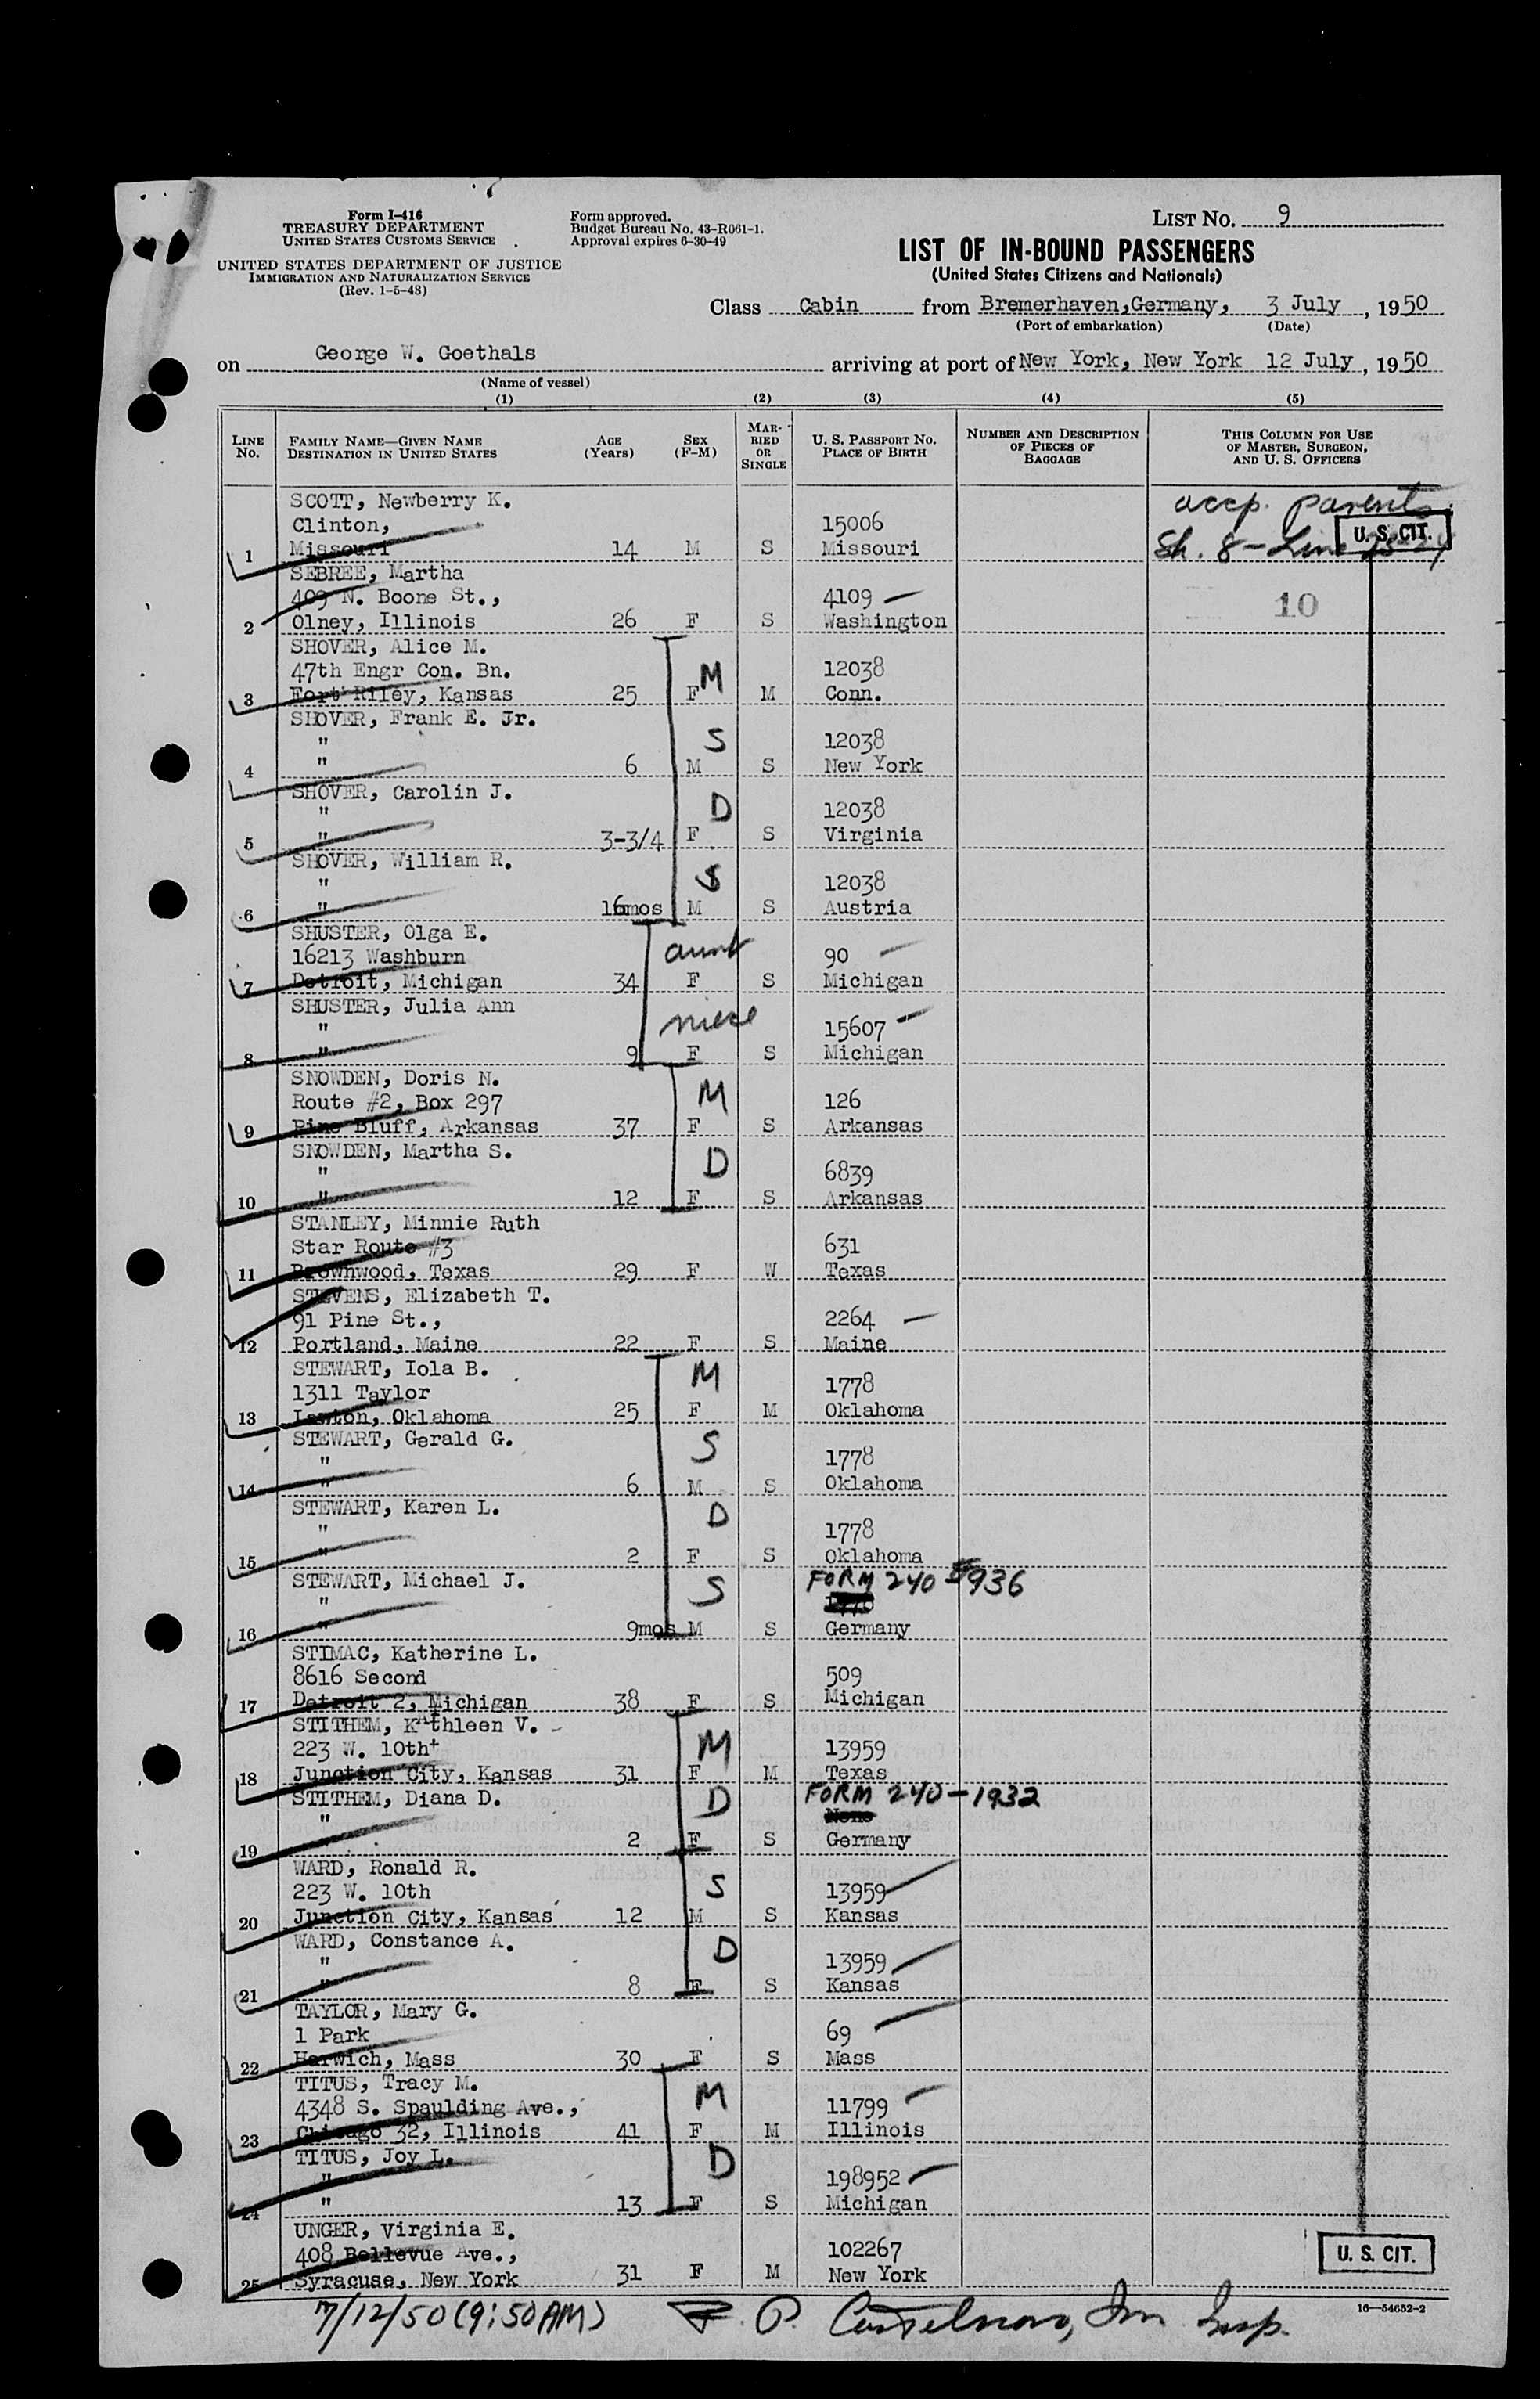 Form I-416
TREASURY DEPARTMENT
UNITED STATES CUSTOMS SERVICE
UNITED STATES DEPARTMENT OF JUSTICE
IMMIGRATION AND NATURALIZATION SERVICE
(Rev. 1-5-48)
Form approved.
Budget Bureau No. 43-R061-1.
Approval expires 6-30-49
LIST NO. 9
LIST OF IN-BOUND PASSENGERS
(United States Citizens and Nationals)
Class Cabin from Bremerhaven,Germany, 3 July, 1950
(Port of embarkation) (Date)
on George W. Goethals arriving at port of New York, New York 12 July, 1950
(Name of vessel)
(1) (2) (3) (4) (5)
LINE No. FAMILY NAME—GIVEN NAME DESTINATION IN UNITED STATES AGE (Years) SEX (F-M) MARRIED OR SINGLE U. S. PASSPORT NO. PLACE OF BIRTH NUMBER AND DESCRIPTION OF PIECES OF BAGGAGE THIS COLUMN FOR USE OF MASTER, SURGEON, AND U. S. OFFICERS
SCOTT, Newberry K. accp. parents
Clinton, 15006 U. S. CIT.
1 Missouri 14 M S Missouri Sh. 8- Line
SEBREE, Martha
409 N. Boone St., 4109 — 10
2 Olney, Illinois 26 F S Washington
SHOVER, Alice M.
47th Engr Con. Bn. M 12038
3 Fort Riley, Kansas 25 F M Conn.
SHOVER, Frank E. Jr.
" S 12038
4 " 6 M S New York
SHOVER, Carolin J.
" D 12038
5 " 3-3/4 F S Virginia
SHOVER, William R.
" S 12038
6 " 16mos M S Austria
SHUSTER, Olga E.
16213 Washburn aunt 90
7 Detroit, Michigan 34 F S Michigan
SHUSTER, Julia Ann
" niece 15607
8 " 9 F S Michigan
SNOWDEN, Doris N.
Route #2, Box 297 M 126
9 Pine Bluff, Arkansas 37 F S Arkansas
SNOWDEN, Martha S.
" D 6839
10 " 12 F S Arkansas
STANLEY, Minnie Ruth
Star Route #3 631
11 Brownwood, Texas 29 F W Texas
STEVENS, Elizabeth T.
91 Pine St., 2264 —
12 Portland, Maine 22 F S Maine
STEWART, Iola B.
1311 Taylor M 1778
13 Lawton, Oklahoma 25 F M Oklahoma
STEWART, Gerald G.
" S 1778
14 " 6 M S Oklahoma
STEWART, Karen L.
" D 1778
15 " 2 F S Oklahoma
STEWART, Michael J. FORM 240 - 936
" S
16 " 9mos M S Germany
STIMAC, Katherine L.
8616 Second 509
17 Detroit 2, Michigan 38 F S Michigan
STITHEM, Kathleen V.
223 W. 10th M 13959
18 Junction City, Kansas 31 F M Texas
STITHEM, Diana D. D FORM 240-1932
" None
19 " 2 F S Germany
WARD, Ronald R.
223 W. 10th S 13959
20 Junction City, Kansas 12 M S Kansas
WARD, Constance A.
" D 13959
21 " 8 F S Kansas
TAYLOR, Mary G.
1 Park 69
22 Harwich, Mass 30 F S Mass
TITUS, Tracy M.
4348 S. Spaulding Ave., M 11799
23 Chicago 32, Illinois 41 F M Illinois
TITUS, Joy L.
" D 198952
24 " 13 F S Michigan
UNGER, Virginia E.
408 Bellevue Ave., 102267 U. S. CIT.
25 Syracuse, New York 31 F M New York
16—54652-2
7/12/50 (9:50AM) P. Imm Insp.